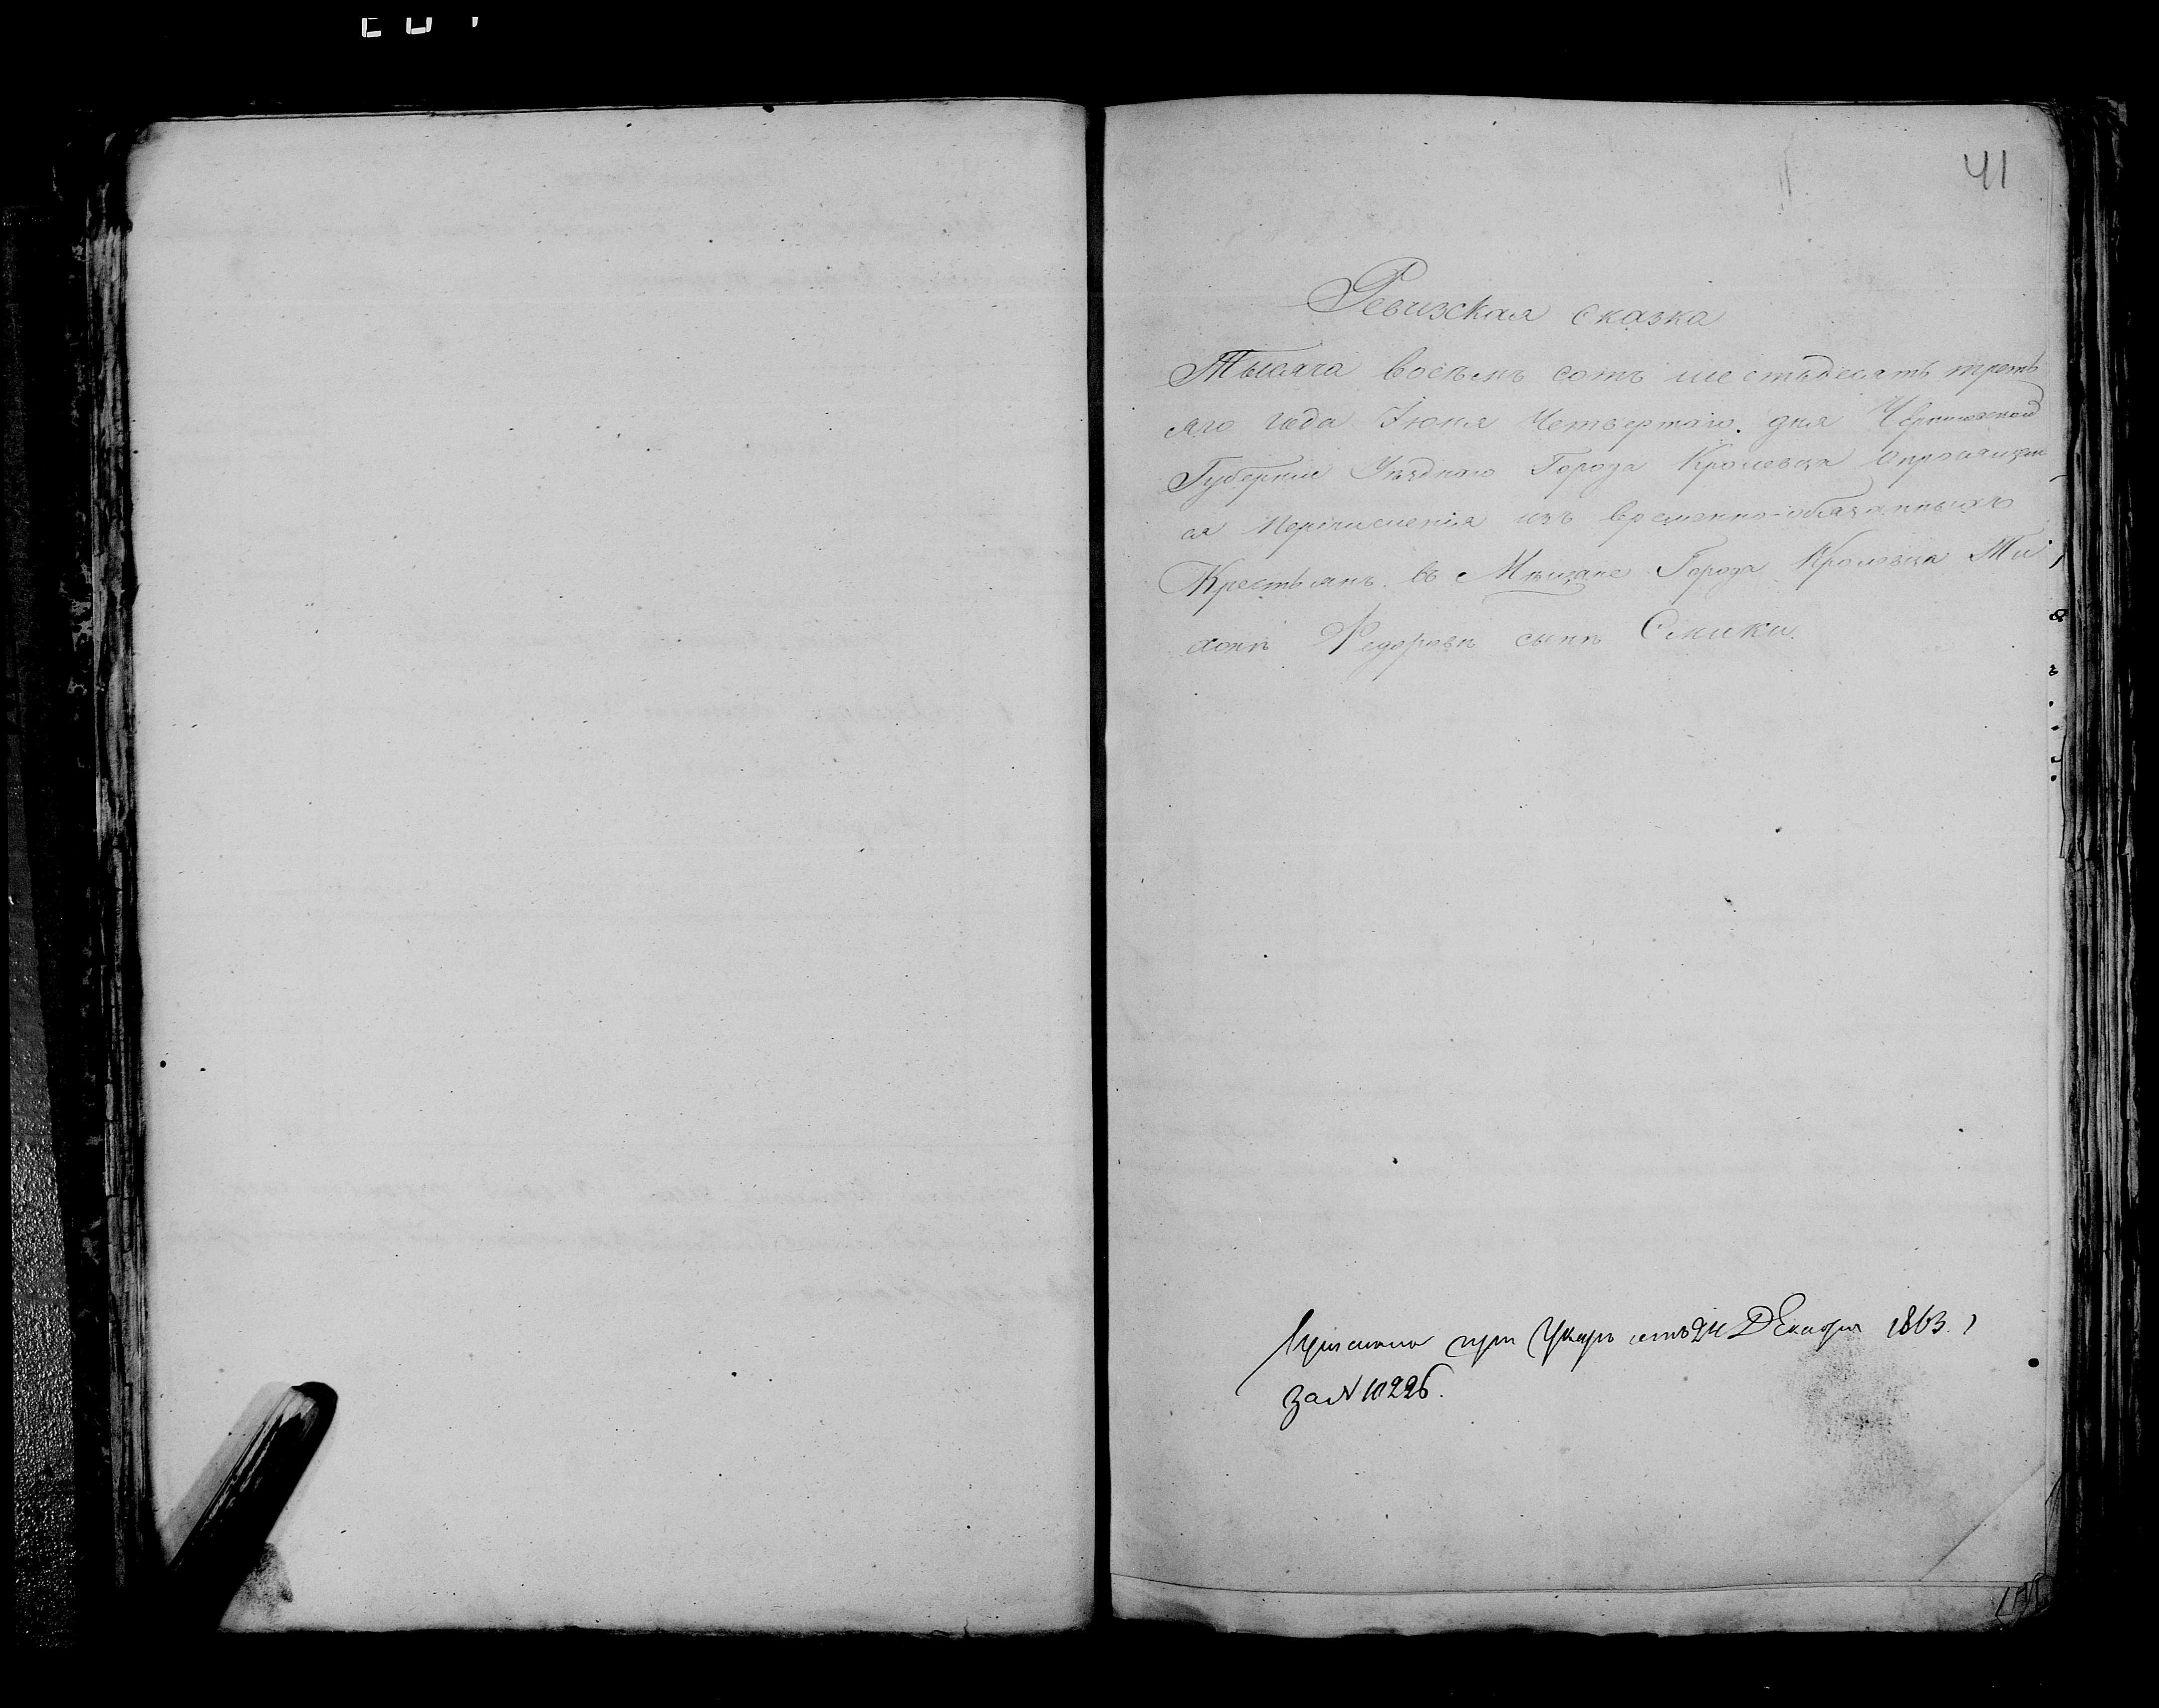 41
Ревизская сказка
Тысяча восемь сотъ шестьдесятъ треть
яго года Іюня Четвертаго дня Черниговской
Губерніи Уѣзднаго Города Кролевца о
ся перечисленія изъ временно-обязанныхъ
Крестьянъ въ Мѣщане Города Кролевца Ти
хонъ Федоровъ сынъ Смики
при Указѣ отъ 24 Декабря 1863 г
за N 10226.